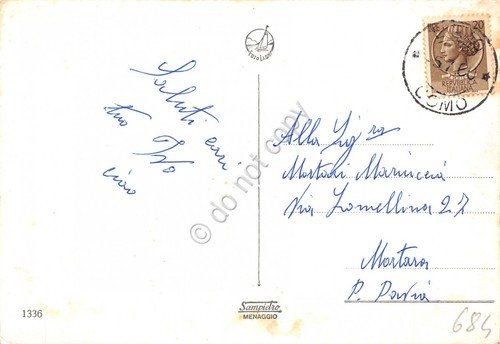 Saluti cari
tuo Ivo
ciao
Alla Sig.ra
Mortari Mariuccia
Via Lomellina 27
Mortara
P. Pavia
20
COMO
do not copy
1336
Sampietro
MENAGGIO
684